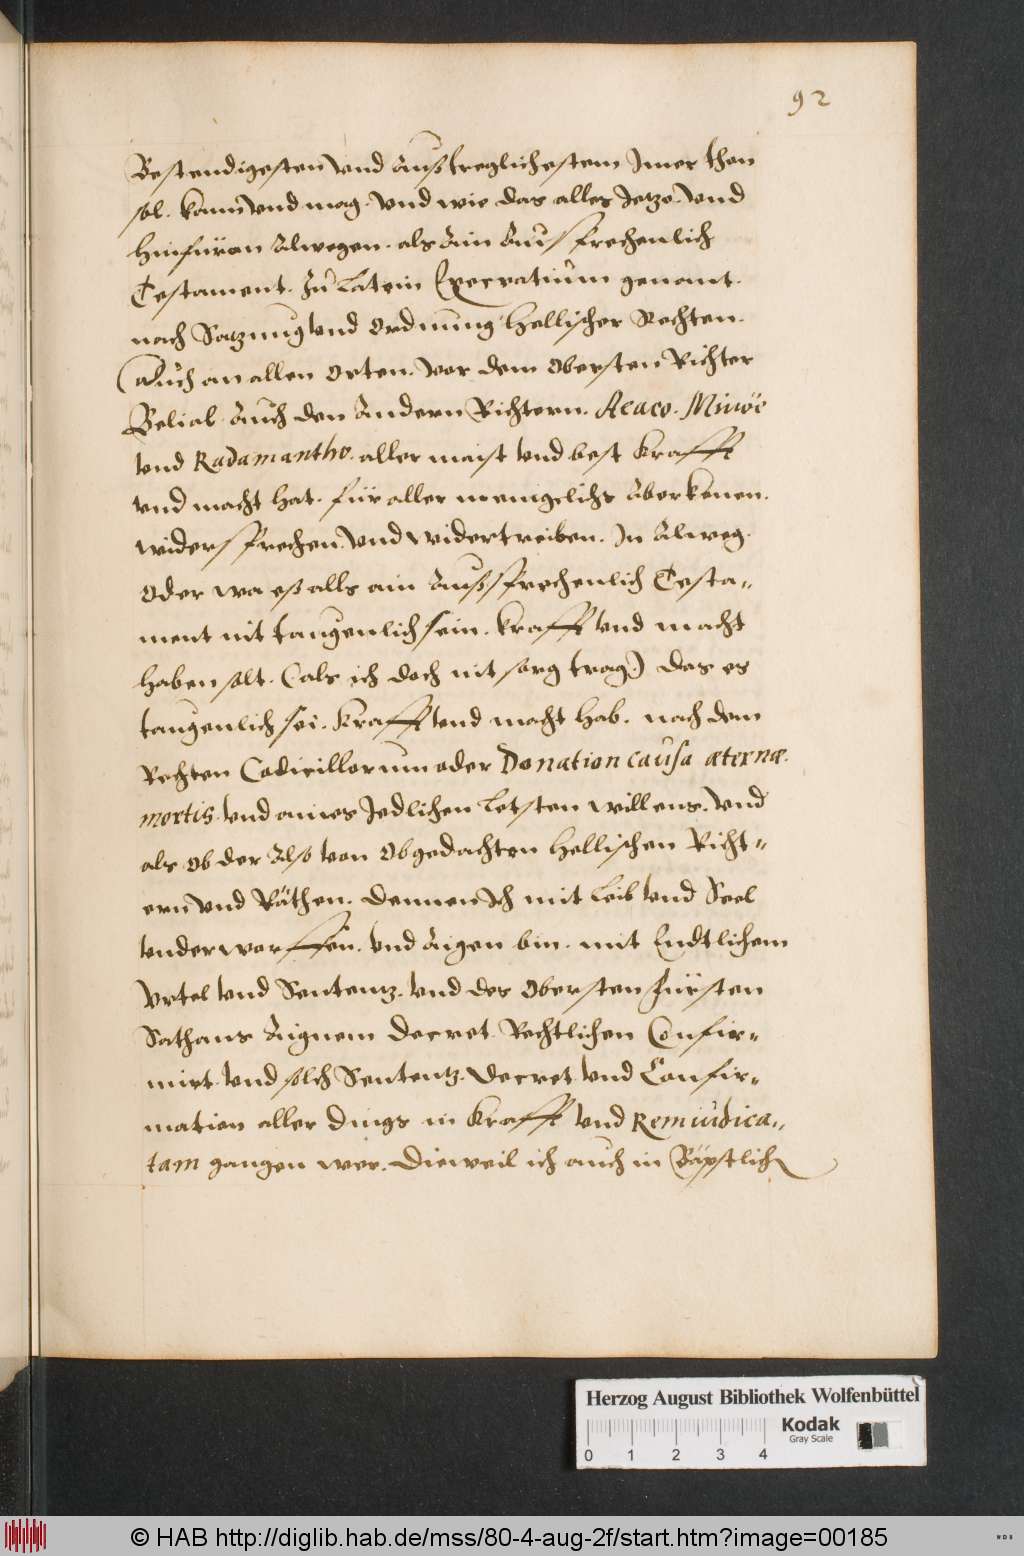 92
Bestendigesten vnd außtreglichestem Jmer than
sol. kann vnd mag. vnd wie das alles Jetzo. vnd
hinfüran Alwegen. als Ain Aussprechenlich
Testament. Zu Latein Execratium genant.
nach Satzung vnd Ordnung Hellischer Rechten.
(Auch an allen Orten. vor dem Obersten Richter
Belial. Auch den Andern Richtern. Aeaco. Minöe
vnd Radamantho. aller maist vnd best krafft
vnd macht hat. für aller menigelichs Aberkenen.
widersprechen. vnd widertreiben. Jn Alweg.
Oder wa eß alls ain Außsprechenlich Testa-
ment nit taugenlich sein. krafft vnd macht
haben solt. (als ich doch nit sorg trag.) das es
taugenlich sei. krafft vnd macht hab. nach dem
Rechten Codicillorum oder Donation causa æternæ.
mortis. vnd aines Jedlichen Letsten willens. vnd
als ob der Also von Obgedachten Hellischen Richt-
ern vnd Räthen. dennen Jch mit Leib vnd Seel
vnderworffen. vnd Aigen bin. mit Endtlichem
vrtel vnd Sententz. vnd des Obersten Fürsten
Sathans Aignem decret. Rechtlichen Confir-
mirt. vnd solch Sententz. decret. vnd Confir-
mation aller dings in krafft vnd Rem iudica-
tam gangen wer. dieweil ich auch in Bäpstlich
Herzog August Bibliothek Wolfenbüttel
Kodak
Gray Scale
0 1 2 3 4
© HAB http://diglib.hab.de/mss/80-4-aug-2f/start.htm?image=00185